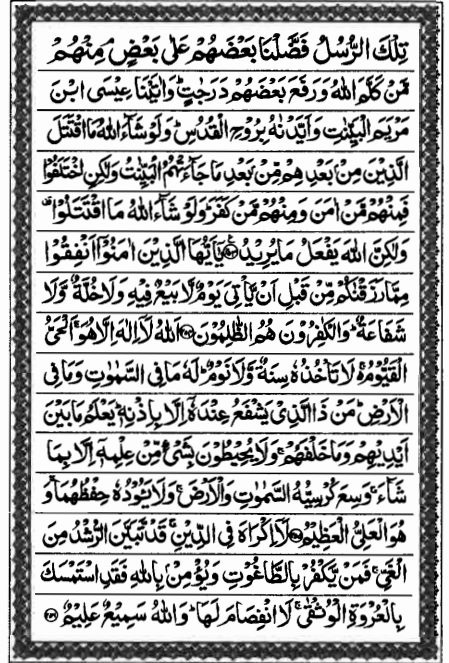 تِلْكَ الرُّسُلُ فَضَّلْنَا بَعْضَهُمْ عَلٰى بَعْضٍ مِنْهُمْ
مَّنْ كَلَّمَ اللهُ وَرَفَعَ بَعْضَهُمْ دَرَجٰتٍ ؕ وَاٰتَيْنَا عِيْسَى ابْنَ
مَرْيَمَ الْبَيِّنٰتِ وَاَيَّدْنٰهُ بِرُوْحِ الْقُدُسِ ؕ وَلَوْ شَآءَ اللهُ مَا اقْتَتَلَ
الَّذِيْنَ مِنْۢ بَعْدِهِمْ مِّنْۢ بَعْدِ مَا جَآءَتْهُمُ الْبَيِّنٰتُ وَلٰكِنِ اخْتَلَفُوْا
فَمِنْهُمْ مَّنْ اٰمَنَ وَمِنْهُمْ مَّنْ كَفَرَ ؕ وَلَوْ شَآءَ اللهُ مَا اقْتَتَلُوْا ۟
وَلٰكِنَّ اللهَ يَفْعَلُ مَا يُرِيْدُ ﴿۲۵۳﴾ يٰۤاَيُّهَا الَّذِيْنَ اٰمَنُوْۤا اَنْفِقُوْا
مِمَّا رَزَقْنٰكُمْ مِّنْ قَبْلِ اَنْ يَّاْتِيَ يَوْمٌ لَّا بَيْعٌ فِيْهِ وَلَا خُلَّةٌ وَّلَا
شَفَاعَةٌ ؕ وَالْكٰفِرُوْنَ هُمُ الظّٰلِمُوْنَ ﴿۲۵۴﴾ اَللهُ لَاۤ اِلٰهَ اِلَّا هُوَ ۚ اَلْحَيُّ
الْقَيُّوْمُ ۚ لَا تَاْخُذُهٗ سِنَةٌ وَّلَا نَوْمٌ ؕ لَهٗ مَا فِي السَّمٰوٰتِ وَمَا فِي
الْاَرْضِ ؕ مَنْ ذَا الَّذِيْ يَشْفَعُ عِنْدَهٗۤ اِلَّا بِاِذْنِهٖ ؕ يَعْلَمُ مَا بَيْنَ
اَيْدِيْهِمْ وَمَا خَلْفَهُمْ ۚ وَلَا يُحِيْطُوْنَ بِشَيْءٍ مِّنْ عِلْمِهٖۤ اِلَّا بِمَا
شَآءَ ۚ وَسِعَ كُرْسِيُّهُ السَّمٰوٰتِ وَالْاَرْضَ ۚ وَلَا يَـُٔوْدُهٗ حِفْظُهُمَا ۚ وَ
هُوَ الْعَلِيُّ الْعَظِيْمُ ﴿۲۵۵﴾ لَاۤ اِكْرَاهَ فِي الدِّيْنِ ۟ۙ قَدْ تَّبَيَّنَ الرُّشْدُ مِنَ
الْغَيِّ ۚ فَمَنْ يَّكْفُرْ بِالطَّاغُوْتِ وَيُؤْمِنْۢ بِاللهِ فَقَدِ اسْتَمْسَكَ
بِالْعُرْوَةِ الْوُثْقٰى ۗ لَا انْفِصَامَ لَهَا ؕ وَاللهُ سَمِيْعٌ عَلِيْمٌ ﴿۲۵۶﴾